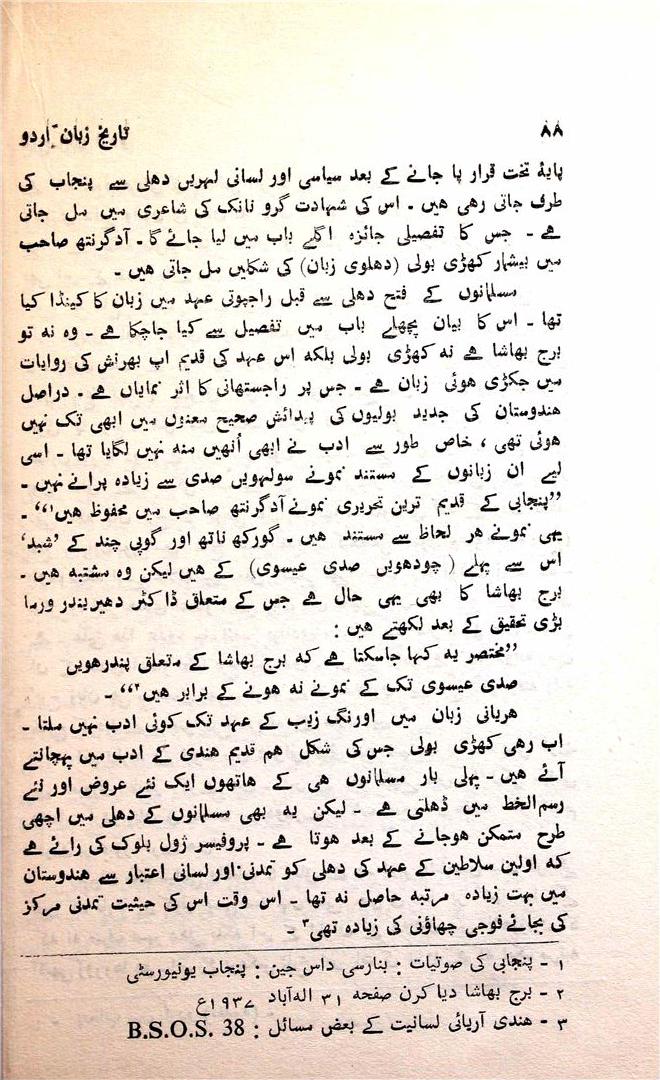 ۸۸
تاریخ زبان اردو
پایۂ تخت قرار پا جانے کے بعد سیاسی اور لسانی لہریں دہلی سے پنجاب کی
طرف جاتی رہی ہیں ۔ اس کی شہادت گرو نانک کی شاعری میں مل جاتی
ہے ۔ جس کا تفصیلی جائزہ اگلے باب میں لیا جائے گا ۔ آدگرنتھ صاحب
میں بیشمار کھڑی بولی (دھلوی زبان) کی شکلیں مل جاتی ہیں ۔
مسلمانوں کے فتح دھلی سے قبل راجپوتی عہد میں زبان کا کینڈا کیا
تھا ۔ اس کا بیان پچھلے باب میں تفصیل سے کیا جاچکا ہے ۔ وہ نہ تو
برج بھاشا ہے نہ کھڑی بولی بلکہ اس عہد کی قدیم اپ بھرنش کی روایات
میں جکڑی ہوئی زبان ہے ۔ جس پر راجستھانی کا اثر نمایاں ہے ۔ دراصل
ھندوستان کی جدید بولیوں کی پیدائش صحیح معنوں میں ابھی تک نہیں
ہوئی تھی ، خاص طور سے ادب نے ابھی اُنھیں منہ نہیں لگایا تھا ۔ اسی
لیے ان زبانوں کے مستند نمونے سولہویں صدی سے زیادہ پرانے نہیں ۔
”پنجابی کے قدیم ترین تحریری نمونے آدگرنتھ صاحب میں محفوظ ہیں۱“ ۔
یہی نمونے ہر لحاظ سے مستند ہیں ۔ گورکھ ناتھ اور گوپی چند کے ’شبد‘
اس سے پہلے (چودھویں صدی عیسوی) کے ہیں لیکن وہ مشتبہ ہیں ۔
برج بھاشا کا بھی یہی حال ہے جس کے متعلق ڈاکٹر دھیریندر ورما
بڑی تحقیق کے بعد لکھتے ہیں :
”مختصر یہ کہا جاسکتا ہے کہ برج بھاشا کے متعلق پندرھویں
صدی عیسوی تک کے نمونے نہ ہونے کے برابر ہیں۲“ ۔
ہریانی زبان میں اورنگ زیب کے عہد تک کوئی ادب نہیں ملتا ۔
اب رہی کھڑی بولی جس کی شکل ہم قدیم ہندی کے ادب میں پہچانتے
آئے ہیں ۔ پہلی بار مسلمانوں ہی کے ہاتھوں ایک نئے عروض اور نئے
رسم الخط میں ڈھلتی ہے ۔ لیکن یہ بھی مسلمانوں کے دھلی میں اچھی
طرح متمکن ہوجانے کے بعد ہوتا ہے ۔ پروفیسر ژول بلوک کی رائے ہے
کہ اولین سلاطین کے عہد کی دھلی کو تمدنی اور لسانی اعتبار سے ہندوستان
میں بہت زیادہ مرتبہ حاصل نہ تھا ۔ اس وقت اس کی حیثیت تمدنی مرکز
کی بجائے فوجی چھاؤنی کی زیادہ تھی۳ ۔
۱ ۔ پنجابی کی صوتیات : بنارسی داس جین : پنجاب یونیورسٹی
۲ ۔ برج بھاشا دیا کرن صفحہ ۳۱ الہ آباد ۱۹۳۷ع
۳ ۔ ہندی آریائی لسانیت کے بعض مسائل : B.S.O.S. 38